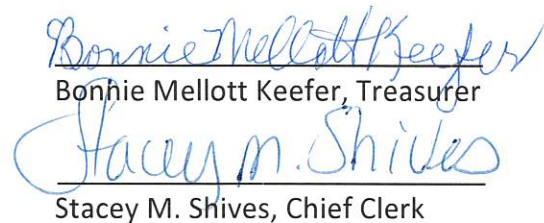 Bonnie Mellott Keefer
Bonnie Mellott Keefer, Treasurer
Stacey M. Shives
Stacey M. Shives, Chief Clerk